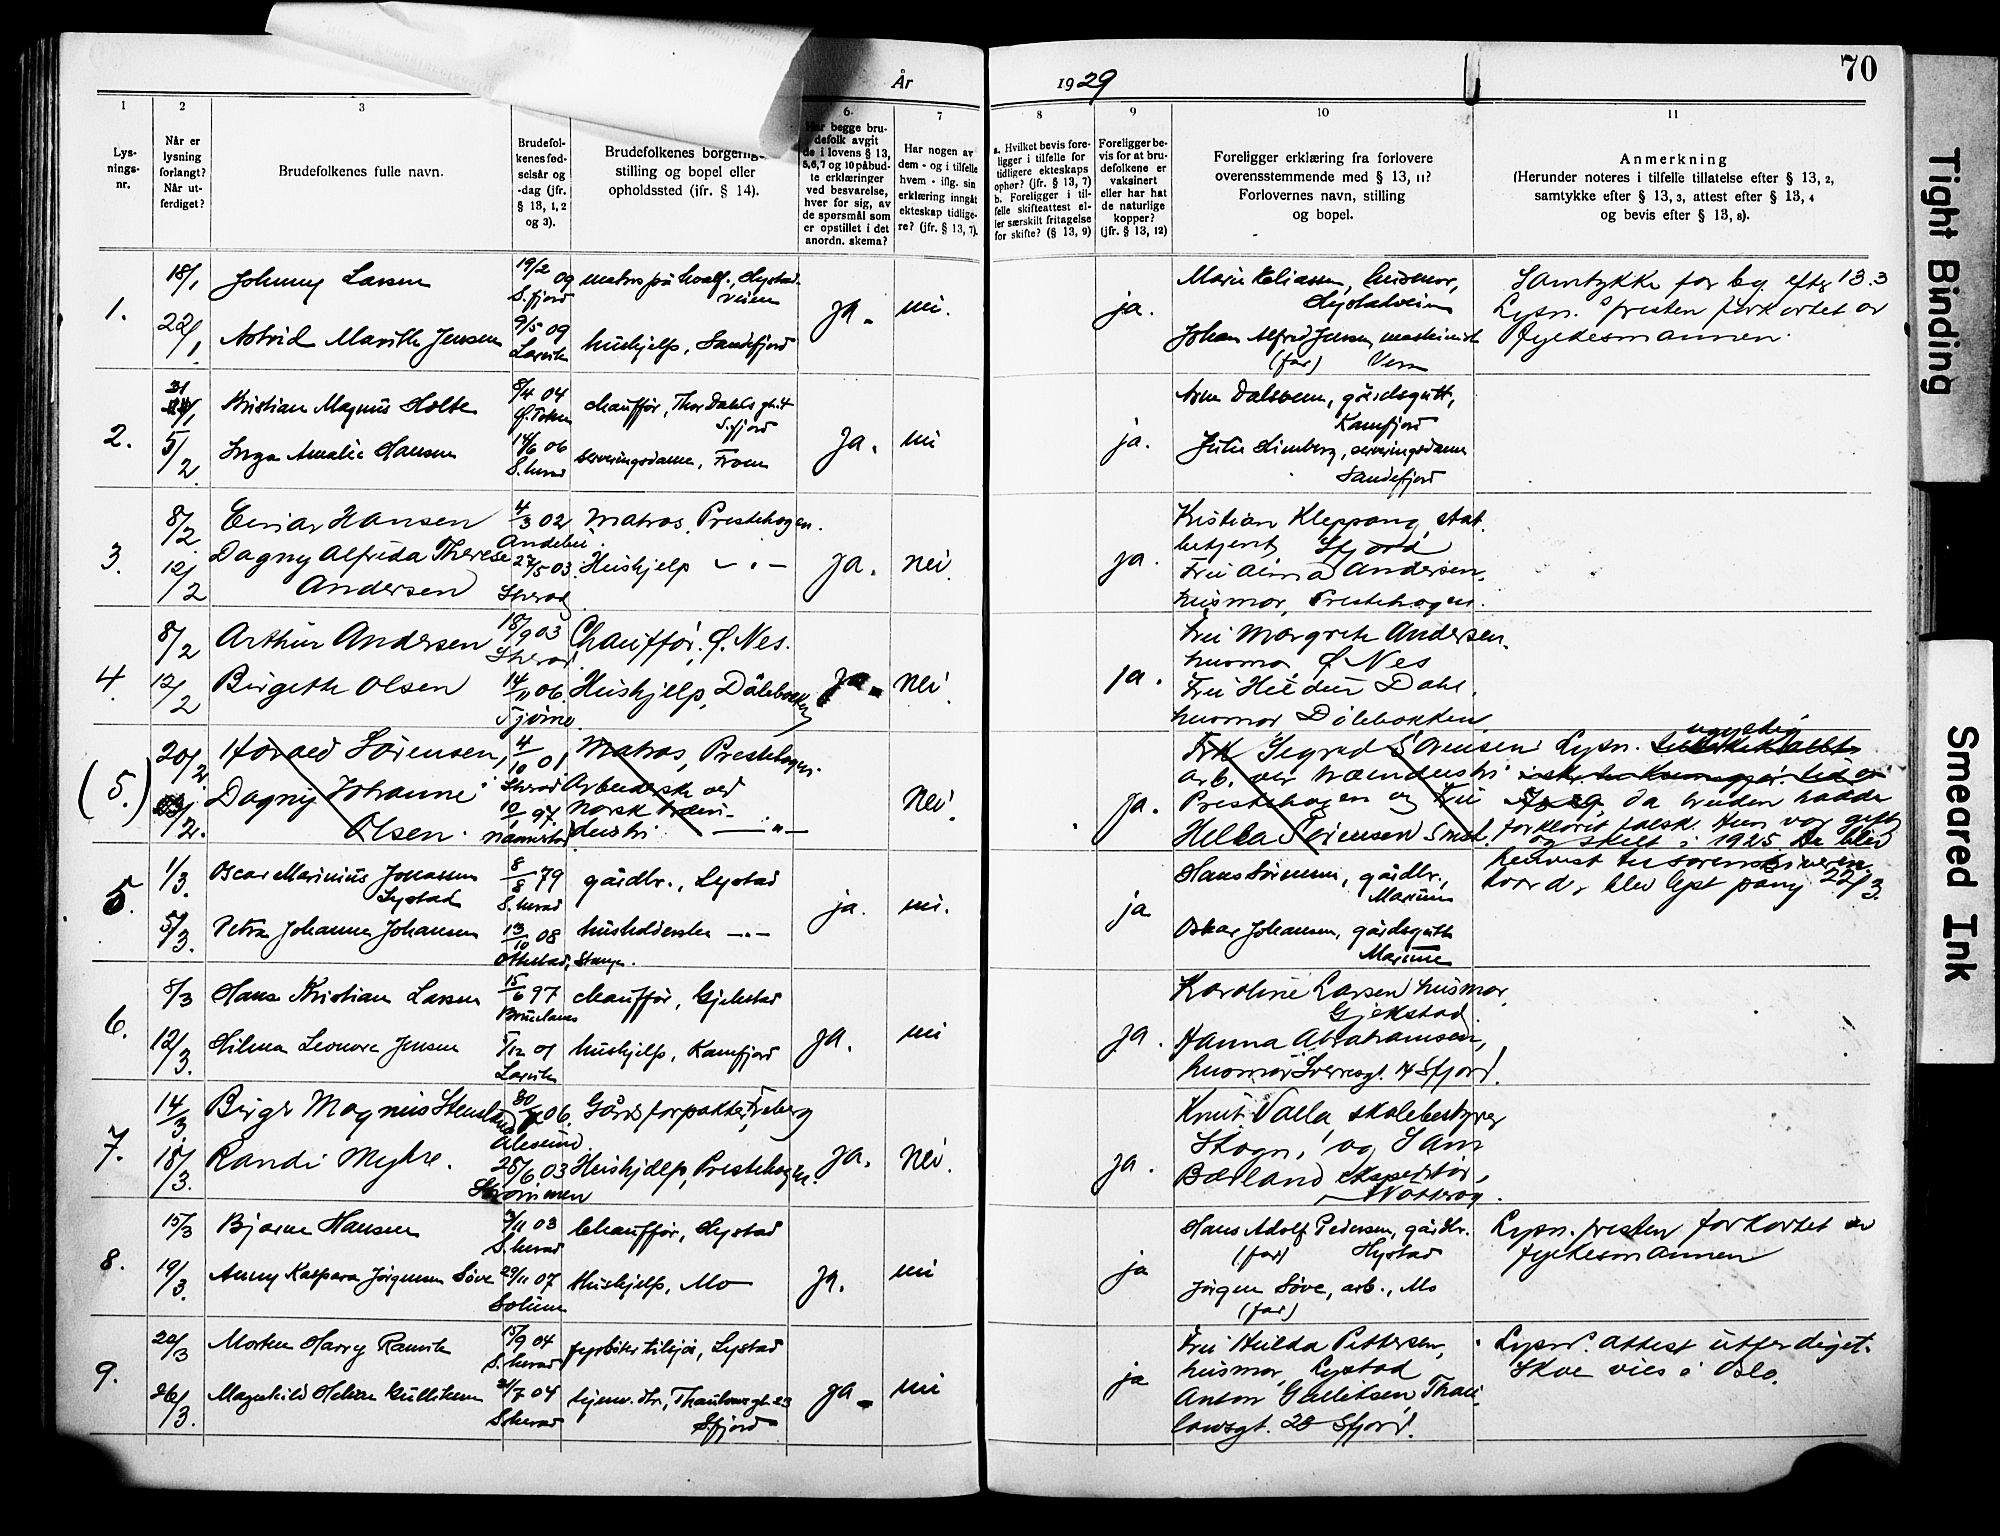 År 1929
70
1
2
3
6.
7
8
9
10
11
Lys-
nings-
nr.
Når er
lysning
forlangt?
Når ut-
ferdiget?
Brudefolkenes fulle navn.
Brudefol-
kenes fød-
selsår og
-dag (jfr.
§ 13, 1, 2
og 3).
Brudefolkenes borgerlig
stilling og bopel eller
opholdssted (ifr. § 14).
Har begge bru-
defolk avgit
de i lovens § 13,
5,6,7 og 10 påbud-
te erklæringer
ved besvarelse,
hver for sig, av
de spørsmål som
er opstillet i det
anordn. skema?
Har nogen av
dem - og i tilfelle
hvem - iflg. sin
erklæring inngåt
ekteskap tidlige-
re? (jfr. § 13, 7).
a. Hvilket bevis fore-
ligger i tilfelle for
tidligere ekteskaps
ophør? (jfr. § 13, 7)
b. Foreligger i til-
felle skifteattest el-
ler særskilt fritagelse
for skifte? (§ 13, 9)
Foreligger be-
vis for at bru-
defolkene er
vaksinert
eller har hat
de naturlige
kopper?
(jfr. § 13, 12)
Foreligger erklæring fra forlovere
overensstemmende med § 13, 11?
Forlovernes navn, stilling
og bopel.
Anmerkning
(Herunder noteres i tilfelle tillatelse efter § 13, 2,
samtykke efter § 13, 3, attest efter § 13, 4
og bevis efter § 13, 8).
1.
18/1
22/1
Johnny Larsen
Astrid Marith Jensen
19/2 09
S.fjord
9/5 09
Larvik
matros på hvalf., Hystad-
veien
hushjelp, Sandefjord
ja.
nei.
ja.
Marie Eliassen, husmor,
Hystadveien
Johan Alfred Jensen, maskinist
(far)
Samtykke for bg. efter 13.3
Lysn. fristen forkortet av
fylkesmannen.
2.
5/2
Kristian Magnus Holte
Inga Amalie Hansen
8/4 04
Ø. Toten
14/6 06
S.herad
chauffør, Thor Dahls gt.
S.fjord
serveringsdame, Fram
ja.
nei
ja.
Arne Dalsveen, gårdsgutt,
Kamfjord
Julie Limberg, serveringsdame
Sandefjord
3.
8/2
12/2
Einar Hansen
Dagny Alfrida Therese
Andersen
4/3 02
Andebu.
27/5 03
S.herad
Matros. Prestehagen.
Hushjelp — " —
ja.
nei.
ja.
Kristian Kleppang, stat.
betjent, Sfjord
Fru Alma Andersen,
husmor, Prestehagen.
4.
8/2
12/2
Arthur Andersen
Birgith Olsen
18/9 03
S.herad.
14/11 06.
Tjøme
Chauffør. Ø. Nes.
Hushjelp, Dølebakken
ja.
nei.
ja.
Fru Margrete Andersen.
husmor, Ø Nes
Fru Hildur Dahl.
husmor Dølebakken
(5.)
20/2
Harald Sørensen,
Dagny Johanne
Olsen.
4/10 01
S.herad
10/1 97.
Matros, Prestehagen.
Arbeiderske ved
norsk træin-
dustri — " —
nei.
ja.
Frk Segrad Sørensen
arb. ver træindustri
Prestehagen og Fru
Helka Sørensen Smst.
Lysn. ugyldig
da bruden hadde
forklaret falsk. Hun var gift
og skilt i 1925. De blev
henvist til sorenskriveren.
hvord. blev lyst påny 22/3.
5.
1/3.
5/3.
Oscar Marinius Jonassen
Lystad
Petra Johanne Johansen
8/8 79
S.herad
13/10 08
Ottestad, Stange.
gårdbr., Lystad
husholderske — " —
ja.
nei.
ja
Hans Sørensen, gårdbr.,
Marum
Oskar Johansen, gårdsgutt
Marum
6.
8/3
12/3.
Hans Kristian Larsen
Hilma Leonora Jensen
15/6 97
Brunlanes
5/12 01
Larvik
chauffør, Gjekstad
hushjelp, Kamfjord
ja.
nei
ja.
Karoline Larsen husmor,
Gjekstad.
Hanna Abrahamsen,
husmor Sverresgt. 14 Sfjord.
7.
14/3.
18/3.
Birger Magnus Stensland
Randi Myhre.
06.
Ålesund
28/6 03
Strømmen
Gårdsforpakter, Freberg
Hushjelp, Prestehagen.
ja.
nei.
ja.
Knut Valla, skolebestyrer
Skogn, og Sam
Bærland ekspeditør,
Nøtterøy.
8.
15/3
19/3.
Bjarne Hansen
Anny Kaspara Jørgensen Søve
3/11 03
S.herad
29/11 07
Solum
Chauffør, Hystad
Hushjelp, Mo
ja.
nei
ja
Hans Adolf Pedersen, gårdbr.
(far) Hystad
Jørgen Søve, arb., Mo
(far)
Lysn. fristen forkortet av
fylkesmannen
9.
20/3
26/3.
Morten Harry Ramvik
Magnhild Helene Gulliksen
15/9 04
S.herad
21/7 04
S.herad
fyrbøter tilsjøs, Lystad
hjemv. dtr., Thaulowsgt. 23
Sfjord
ja.
nei
ja
Fru Hulda Pettersen,
husmor, Lystad
Anton Gulliksen, Thau-
lowsgt. 23 Sfjord.
Lysn. attest utferdiget.
Skal vies i Oslo.
Tight Binding
Smeared Ink